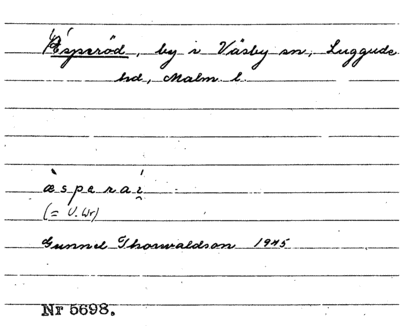 Äsperöd, by i Väsby sn, Luggude
hd, Malm l.
æ̀speraí̯
(= V.Wr)
Gunnel Thorwaldson 1945
Nr 5698.